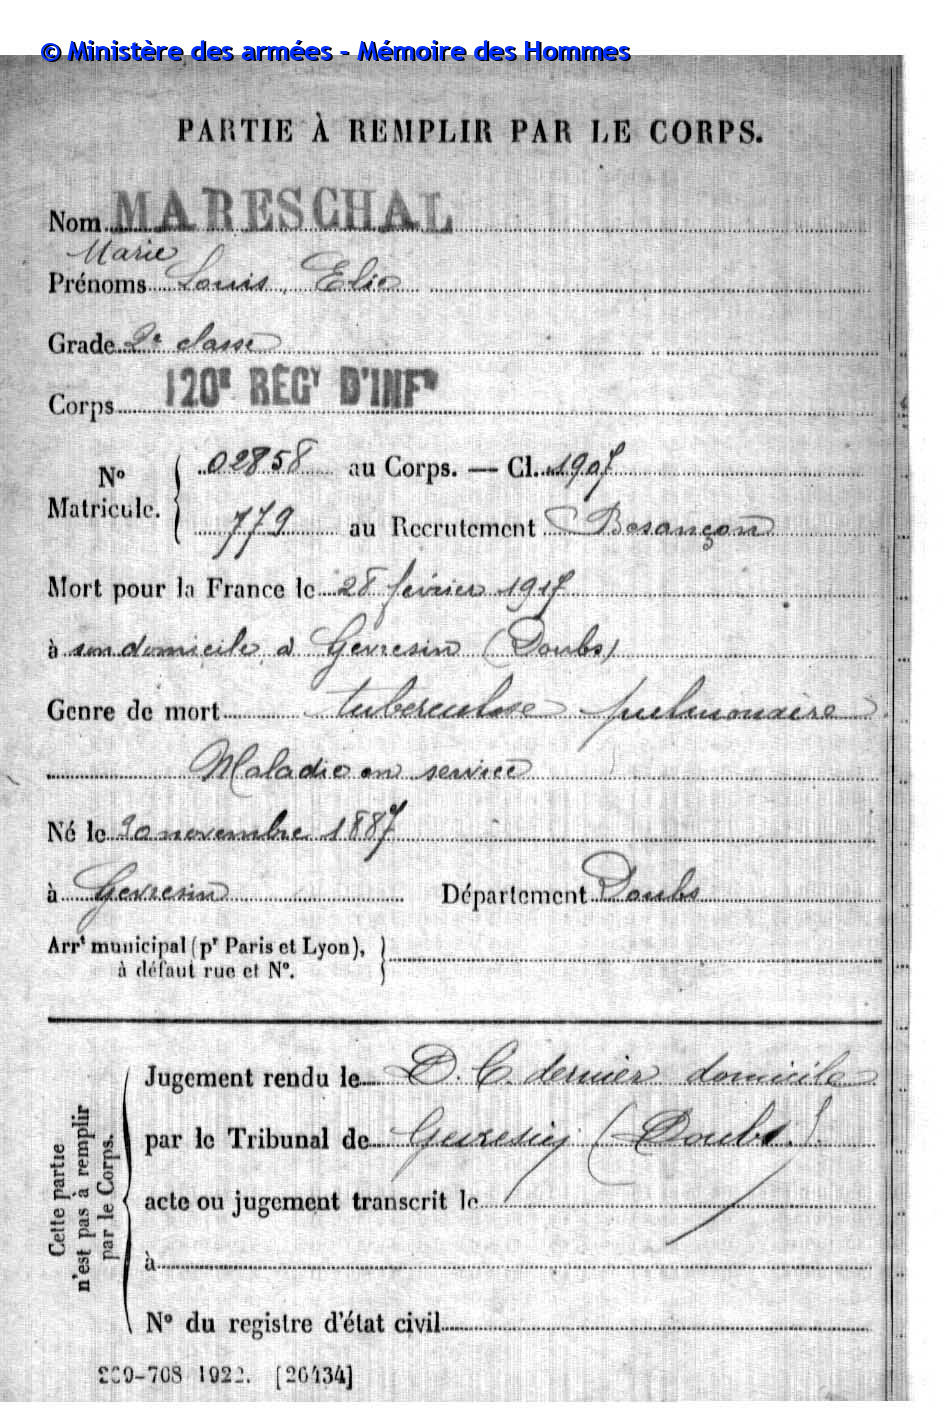 © Ministère des armées - Mémoire des Hommes
PARTIE À REMPLIR PAR LE CORPS.
Nom MARESCHAL
Marie
Prénoms Louis, Elie
Grade 2e classe
Corps 120E REGT D'INFIE
No Matricule. 02858 au Corps. — Cl. 1907
779 au Recrutement Besançon
Mort pour la France le 28 février 1917
à son domicile à Gevresin (Doubs)
Genre de mort tuberculose pulmonaire
Maladie en service
Né le 20 novembre 1887
à Gevresin Département Doubs
Arrt municipal (pr Paris et Lyon),
à défaut rue et No.
Cette partie n'est pas à remplir par le Corps.
Jugement rendu le D. C. dernier domicile
par le Tribunal de Gevresin (Doubs.)
acte ou jugement transcrit le
à
No du registre d'état civil
1922. [26434]